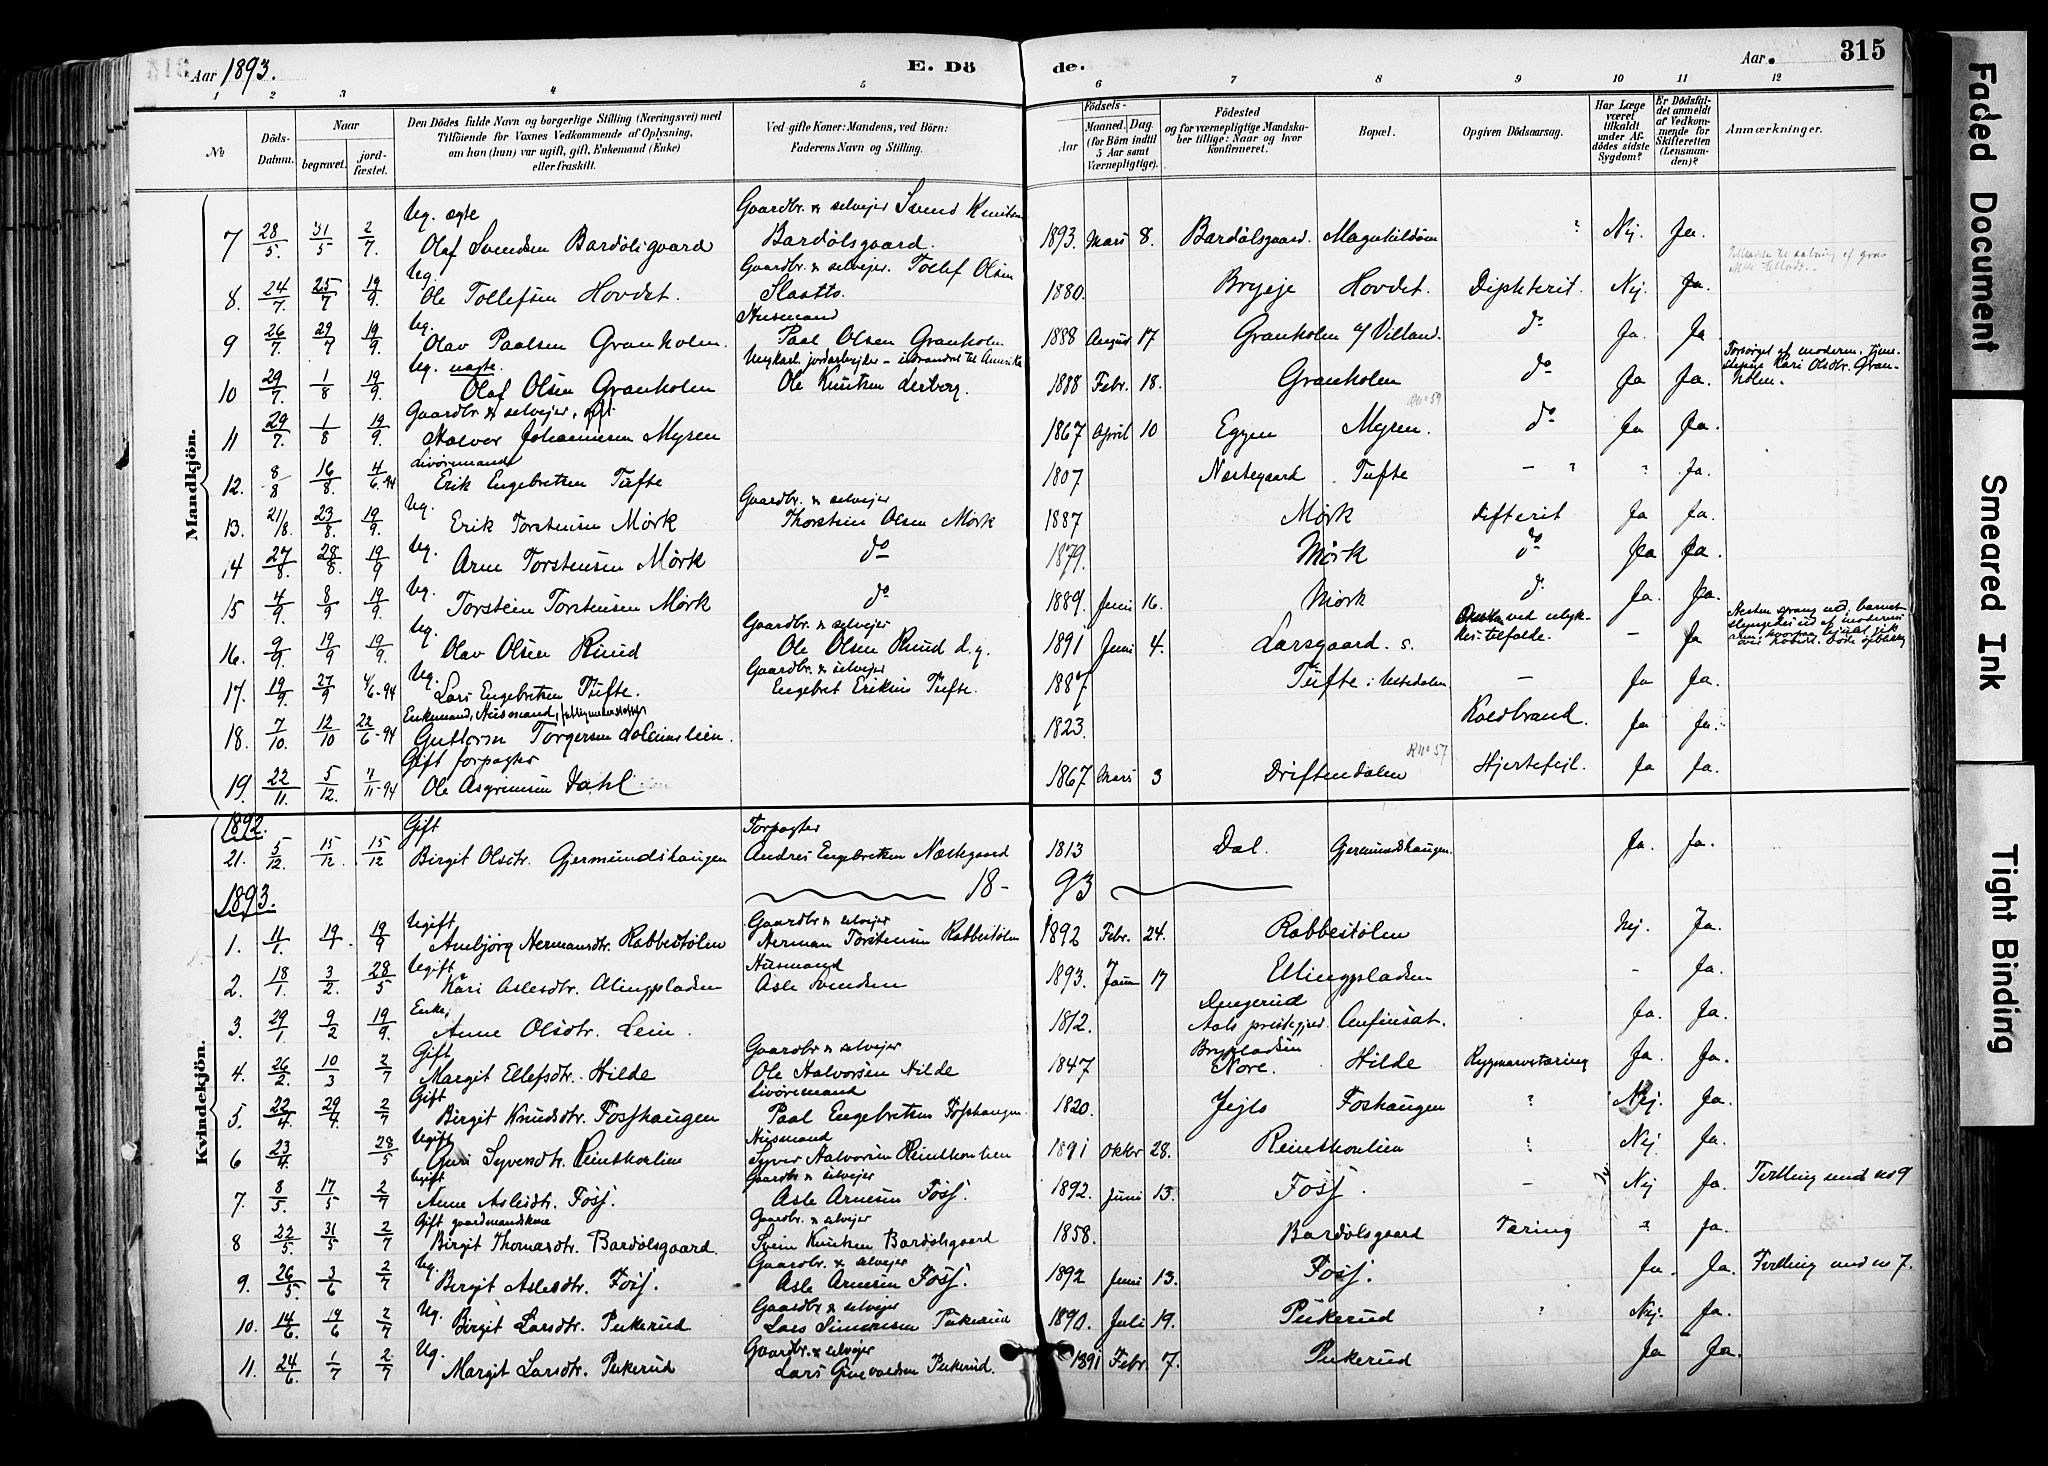 Aar 1893. E. Döde. Aar. 315
1 2 3 4 5 6 7 8 9 10 11 12
No
Döds-Datum.
Naar
begravet.
jordfæstet.
Den Dödes fulde Navn og borgerlige Stilling (Næringsvei) med
Tilföiende for Voxnes Vedkommende af Oplysning,
om han (hun) var ugift, gift, Enkemand (Enke)
eller fraskilt.
Ved gifte Koner: Mandens, ved Börn:
Faderens Navn og Stilling.
Födsels-
Aar
Maaned. Dag.
(for Börn indtil
5 Aar samt
Værnepligtige).
Födested
og for værnepligtige Mandskaber tillige: Naar og hvor
konfirmeret.
Bopæl.
Opgiven Dödsaarsag.
Har Læge
været
tilkaldt
under Afdödes sidste
Sygdom?
Er Dödsfaldet anmeldt
af Vedkommende for
Skifteretten
(Lensmanden)?
Anmærkninger.
Mandkjön.
Ug. ægte Gaardbr. & selvejer Svend Knutsen
7 28/5. 31/5 2/7. Olaf Svendsen Bardølsgaard Bardølsgaard. 1893. Mars 8. Bardølsgaard. Nej. Ja.
Ug. Gaardbr. & selvejer. Tollef Olsen
8. 24/7. 25/7 19/9. Ole Tollefsen Hovdet. Slaatto. 1880. Bryeje Hovdet. Diphterit. Nej. Ja.
Ug. Husmand
9 26/7. 29/7 19/9. Olav Paalsen Granholm. Paal Olsen Granholm 1888 August 17 Granholm u/ Villand. do Ja. Ja
Ug. uægte. Ungkarl, jordarbejder - udvandret til Amerika
10 29/7. 1/8 19/9. Olaf Olsen Granholen Ole Knutsen 1888 Febr. 18. Granholen do Ja Ja. Forsørget af moderen, tjenestepige Kari Olsdtr. Granholen.
Gaardbr. & selvejer, gift No 59
11 29/7. 1/8 19/9. Halvor Johannesen Myren 1867 April 10 Eggen Myren. do Ja Ja.
Livøremand
12. 8/8 16/8. 4/6-94 Erik Engebretsen Tufte 1807 Nestegaard Tufte - " " Ja.
Ug. Gaardbr. & selvejer
13. 21/8. 23/8. 19/9. Erik Torstensen Mørk Thorstein Olsen Mørk 1887 Mørk difterit Ja Ja.
Ug.
14 27/8. 28/8. 19/9 Arne Torstensen Mørk do 1879. Mørk do Ja Ja.
Ug.
15 4/9. 8/9 19/9. Torstein Torstensen Mørk do 1889. Juni 16. Mørk do Ja. Ja.
Ug. Gaardbr. & selvejer
16. 9/9. 19/9 19/9. Olav Olsen Ruud Ole Olsen Ruud d.y. 1891 Juni 4. Larsgaard. s. ved ulykkestilfælde. - Ja Hesten sprang ud, barnet slyngedes ud af moderens
Ug. Gaardbr. & selvejer
17. 19/9. 27/9 4/6-94 Lars Engebretsen Tufte. Engebret Eriksen Tufte. 1887 Tufte i Ustedalen - Ja Ja.
Enkemand, Husmand,
18. 7/10. 12/10 22/6-94 Guttorm Torgersen 1823. Koldbrand. Ja Ja.
Gift forpagter No 57
19. 22/11. 5/12. 7/11-94 Ole Asgrimsen Dahl 1867 Mars 3 Driftendalen Hjertefejl. Ja Ja.
Kvindekjön.
1892. Gift Forpagter
21. 5/12. 15/12. 15/12 Birgit Olsdtr. Gjermundshaugen Andres Engebretsen Nestegaard 1813 Dal Gjermundshaugen. Ja. Ja.
1893. 18-93
Ugift Gaardbr. & selvejer
1. 11/1. 19/1. 19/9 Ambjørg Hermansdtr. Rabbestølen Herman Torstensen Rabbestølen 1892 Febr. 24. Rabbestølen Nej. Ja.
Ugift Husmand
2. 18/1. 3/2. 28/5 Kari Aslesdtr. Elingpladsen Asle Svendsen 1893. Janu 17 Ellingpladsen - Ja.
Enke, Dengerud
3. 29/1. 9/2 19/9. Anne Olsdtr. Lein. 1812. Aals prestegjed. Anfinsæt. Ja. Ja.
Gift Gaardbr. & selvejer
4. 26/2. 10/3 2/7 Margit Ellefsdtr. Hilde Ole Halvorsen Hilde 1847 Nore. Hilde Rygmarvstæring Ja. Ja.
Gift Livøremand
5. 22/4. 29/4. 2/7 Birgit Knudsdtr. Fosshaugen Paal Engebretsen Fosshaugen. 1820. Jejlo Foshaugen " Nej. Ja.
Ugift Husmand
6 23/4. 28/5 Guri Syversdtr. Reinthonlien Syver Halvorsen Reinthonlien 1891 Oktbr 28. Reinthonlien " Nej. Ja.
Ugift Gaardbr. & selvejer
7. 8/5. 17/5 2/7 Anne Aslesdtr. Foss. Asle Arnesen Foss. 1892. Juni 13. Foss. - Nej Ja. Tvilling med no 9
Gift gaardmandskone Gaardbr. & selvejer
8 22/5. 31/5 2/7 Birgit Thomasdtr. Bardølsgaard. Svein Knutsen Bardølsgaard 1858. Bardølsgaard Tæring " Ja.
Ug. Gaardbr. & selvejer
9. 26/5. 3/6 2/7 Birgit Aslesdtr. Foss. Asle Arnesen Foss. 1892 Juni 13. Foss. Ja. Ja. Tvilling med no 7.
Ug. Gaardbr. & selvejer
10. 14/6. 19/6 2/7 Birgit Larsdtr. Pukerud Lars Simensen Pukerud 1890. Juli 19. Pukerud " Nej. Ja.
Ug. Gaardbr. & selvejer
11. 24/6. 1/7 2/7 Margit Larsdtr. Pukerud Lars Pukerud. 1891 Febr. 7. Pukerud Ja Ja.
Faded Document
Smeared Ink
Tight Binding